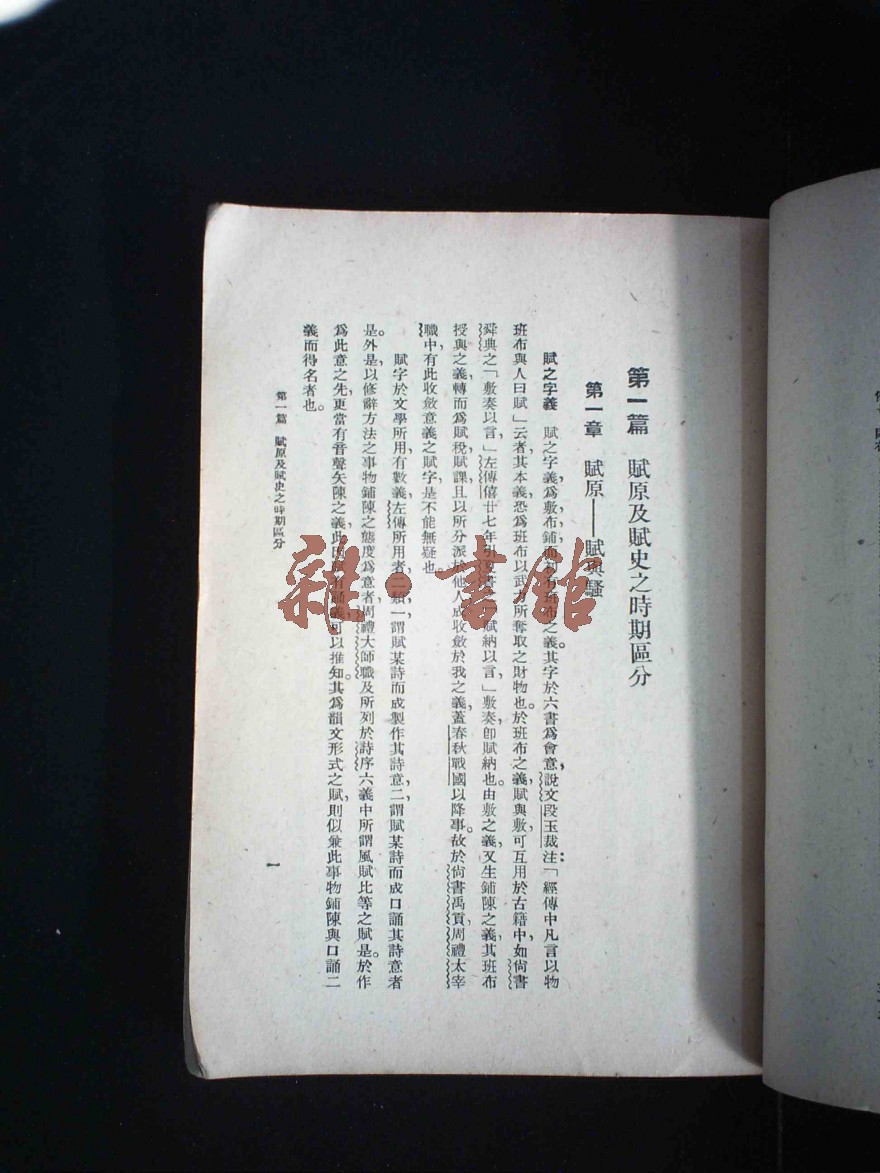 第一篇　賦原及賦史之時期區分
第一章　賦原——賦與騷
賦之字義　賦之字義爲敷，布，鋪，而初有班布之義。其字於六書爲會意，說文段玉裁注：「經傳中凡言以物
班布與人曰賦」云者，其本義，恐爲班布以武力所奪取之財物也。於班布之義，賦與敷，可互用於古籍中，如尚書
舜典之「敷奏以言」，左傳僖廿七年引夏書「賦納以言」，敷奏即賦納也。由敷之義，又生鋪陳之義，其班布
授與之義，轉而爲賦稅，賦課，且以所分派於他人，成收斂於我之義，蓋春秋戰國以降事。故於尚書禹貢，周禮太宰
職中，有此收斂意義之賦字，是不能無疑也。
賦字於文學所用，有數義，左傳所用者，二類，一謂賦某詩而成製作其詩意，二謂賦某詩而成口誦其詩意者
是。外是，以修辭方法之事物鋪陳之態度爲意者，周禮大師職，及所列於詩序六義中所謂風賦比等之賦是。於作
爲此意之先，更當有音聲矢陳之義，此因賦有誦義，可以推知。其爲韻文形式之賦，則似兼此事物鋪陳與口誦二
義而得名者也。
第一篇　賦原及賦史之時期區分
一
雜·書館